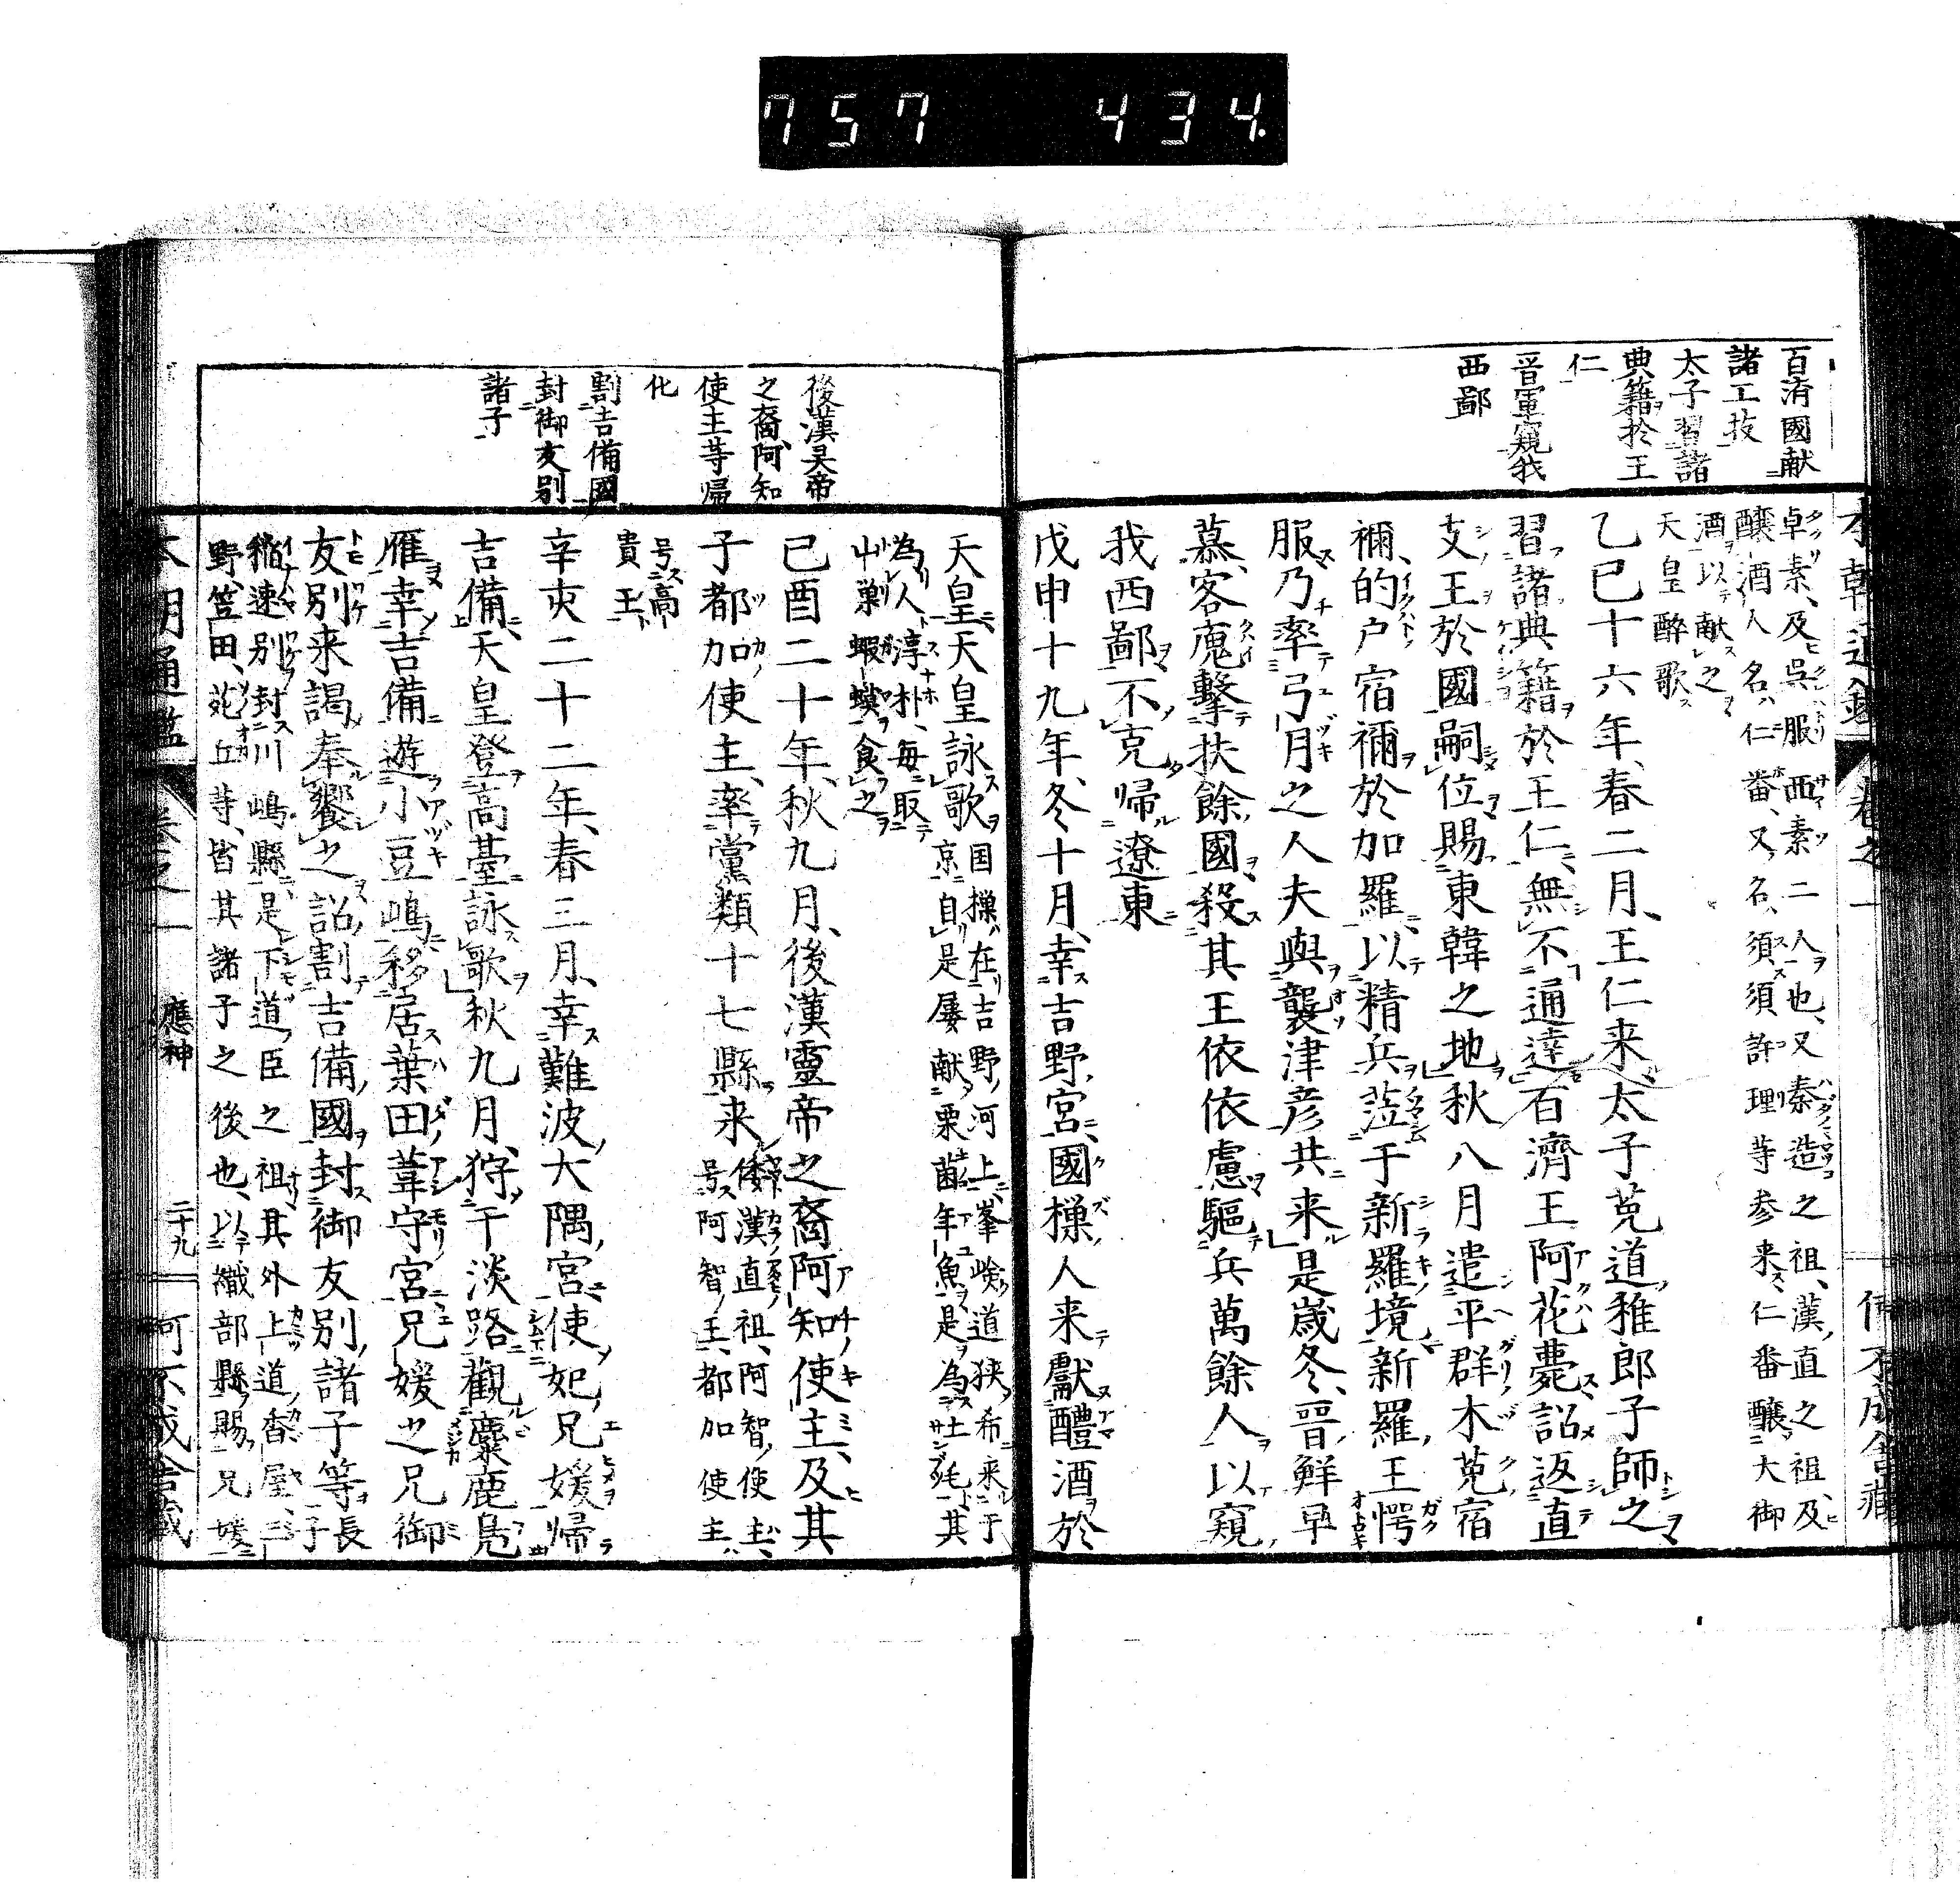 757 434.
百済國献
諸工技
太子習諸
典籍於王
仁
晋軍窺我
西鄙
卓素及呉服西素二人也又秦造之祖漢直之祖及
醸酒人名仁番又名須須許理等参来仁番醸大御
酒以献之
天皇酔歌
乙巳十六年春二月王仁来太子菟道稚郎子師之
習諸典籍於王仁無不通達百濟王阿花薨詔返直
支王於國嗣位賜東韓之地秋八月遣平群木菟宿
禰的戸宿禰於加羅以精兵莅于新羅境新羅王愕
服乃率弓月之人夫與襲津彦共来是歳冬晋鮮卑
慕容廆擊扶餘國殺其王依依慮驅兵萬餘人以窺
我西鄙不克帰遼東
戊申十九年冬十月幸吉野宮國樔人来獻醴酒於
後漢灵帝
之裔阿知
使主等帰
化
割吉備國
封御友別
諸子
天皇天皇詠歌国樔在吉野河上峯嶮道狭希来于
京自是屡献栗菌年魚是為土毛其
為人淳朴毎取
山菓蝦蟆食之
己酉二十年秋九月後漢靈帝之裔阿知使主及其
子都加使主率黨類十七縣来倭漢直祖阿智使主
号阿智王都加使主
号高
貴王
辛亥二十二年春三月幸難波大隅宮使妃兄媛帰
吉備天皇登高臺詠歌秋九月狩于淡路觀麋鹿鳬
雁幸吉備遊小豆嶋移居葉田葦守宮兄媛之兄御
友別来謁奉饗之詔割吉備國封御友別諸子等長子
稲速別封川嶋縣是下道臣之祖其外上道香屋三
野笠田苑丘等皆其諸子之後也以織部縣賜兄媛
卷之一
應神
二十九